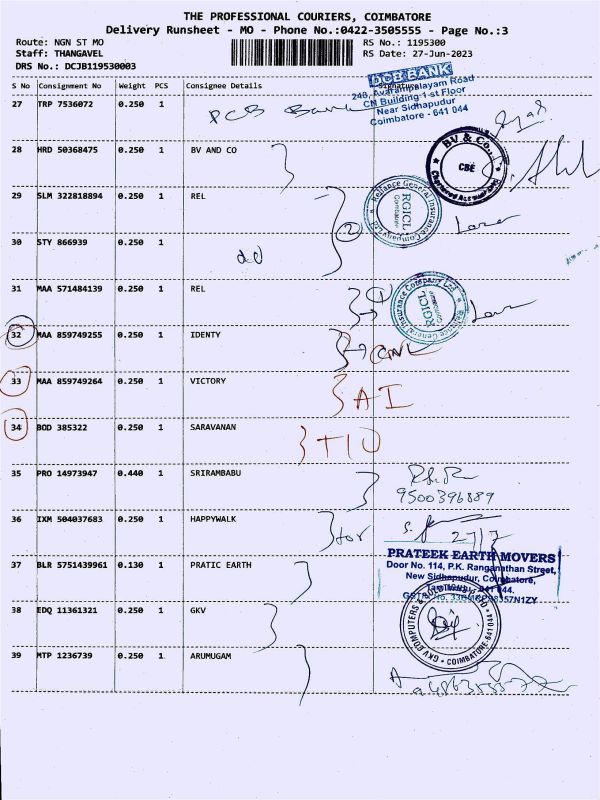 THE PROFESSIONAL COURIERS, COIMBATORE
Delivery Runsheet - MO - Phone No.:0422-3505555 - Page No.:3
Route: NGN ST MO
RS No.: 1195300
Staff: THANGAVEL
RS Date: 27-Jun-2023
DRS No.: DCJB119530003
S No Consignment No Weight PCS Consignee Details Signature
DCB BANK
248, Avarampalayam Road
CN Building 1 st Floor
Near Sidhapudur
Coimbatore - 641 044
27 TRP 7536072 0.250 1 DCB Bank
28 HRD 50368475 0.250 1 BV AND CO
BV & Co.,
CBE
Chartered Accountants
29 SLM 322818894 0.250 1 REL
2
Reliance General Insurance Company Ltd
RGICL
Coimbatore
30 STY 866939 0.250 1 do
31 MAA 571484139 0.250 1 REL
1
Reliance General Insurance Company Ltd
RGICL
Coimbatore
32 MAA 859749255 0.250 1 IDENTY
33 MAA 859749264 0.250 1 VICTORY
AI
34 BOD 385322 0.250 1 SARAVANAN
35 PRO 14973947 0.440 1 SRIRAMBABU
9500396889
36 IXM 504037683 0.250 1 HAPPYWALK
for
27/7
37 BLR 5751439961 0.130 1 PRATIC EARTH
PRATEEK EARTH MOVERS
Door No. 114, P.K. Ranganathan Street,
New Sidhapudur, Coimbatore,
38 EDQ 11361321 0.250 1 GKV
GKV COMPUTERS &
COIMBATORE-641 044
39 MTP 1236739 0.250 1 ARUMUGAM